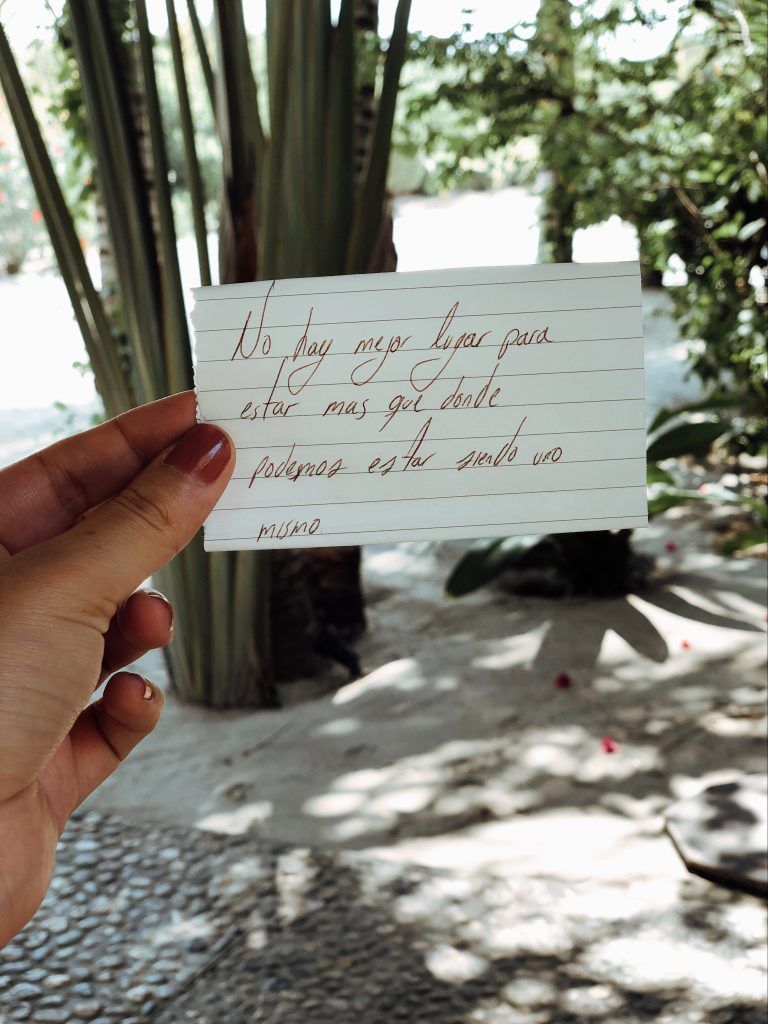 No hay mejor lugar para
estar mas que donde
podemos estar siendo uno
mismo.